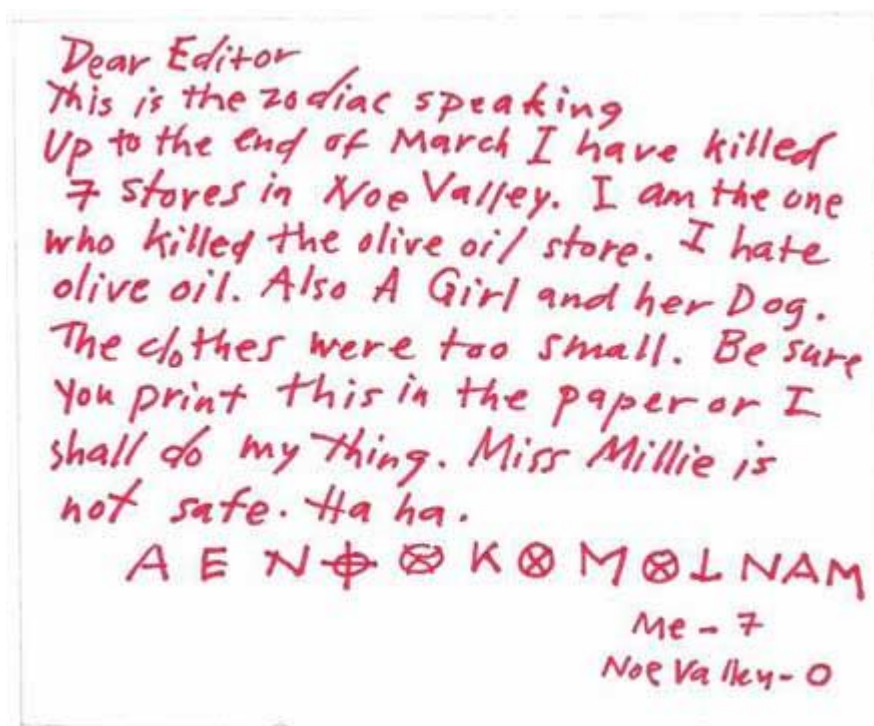 Dear Editor
This is the zodiac speaking
Up to the end of March I have killed
7 stores in Noe Valley. I am the one
who killed the olive oil store. I hate
olive oil. Also A Girl and her Dog.
The clothes were too small. Be sure
you print this in the paper or I
shall do my thing. Miss Millie is
not safe. Ha ha.
A E N ⌖ ⊗ K ⊗ M ⊗ ⊥ NAM
Me - 7
Noe Valley - 0